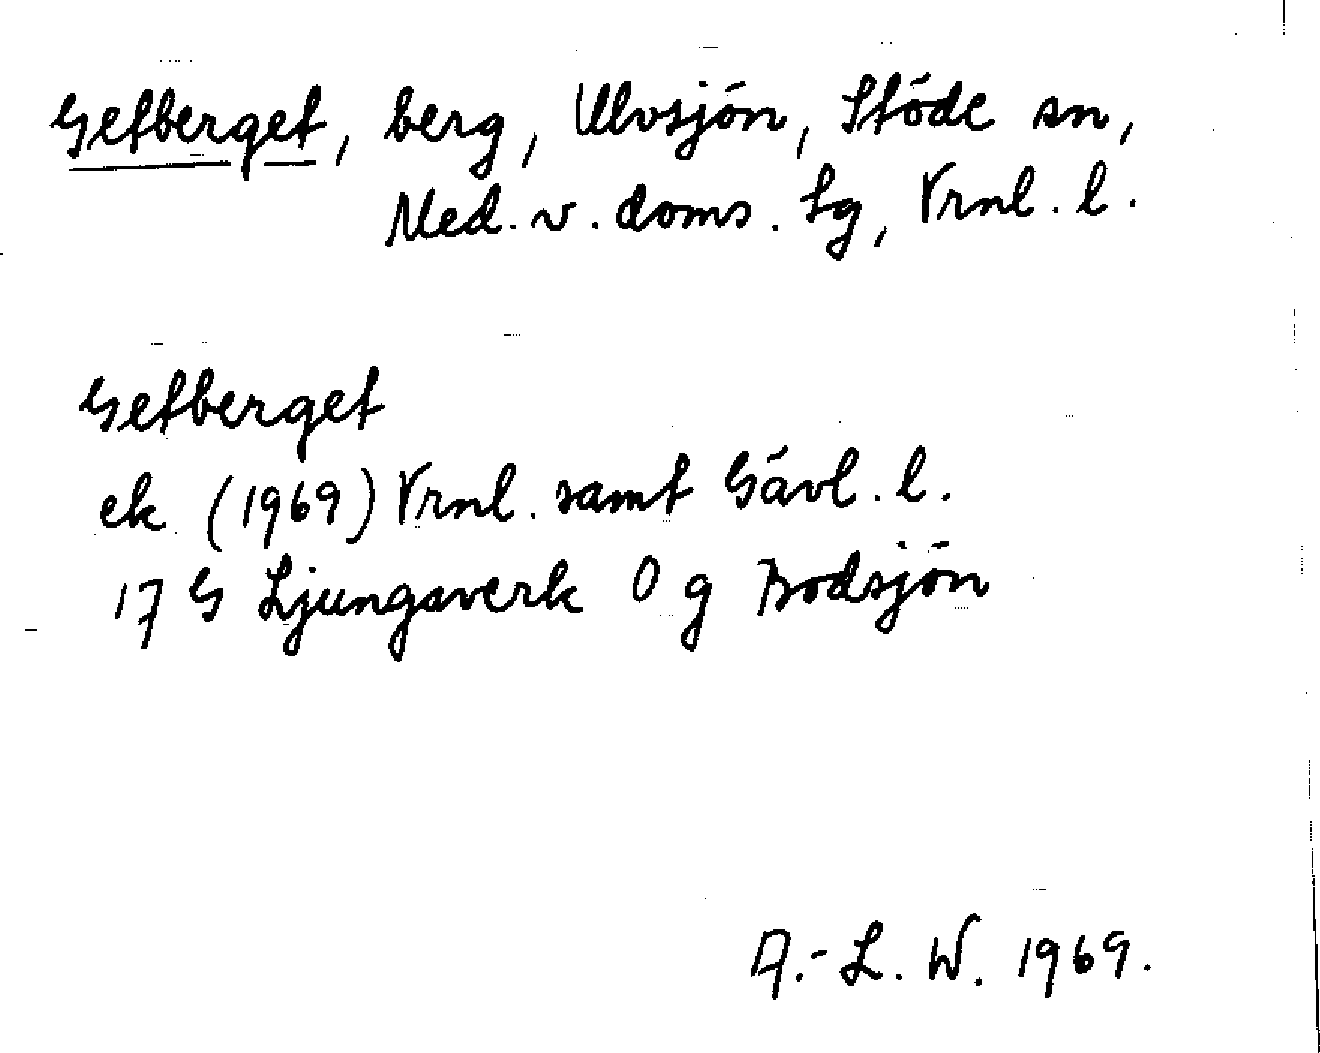 Getberget, berg, Ulvsjön, Stöde sn,
Med. v. doms. Lg, Vrnl. l.
Getberget
ek (1969) Vrnl. samt Gävl. l.
17 G Ljungaverk 0 g Bodsjön
A.-L. W. 1969.